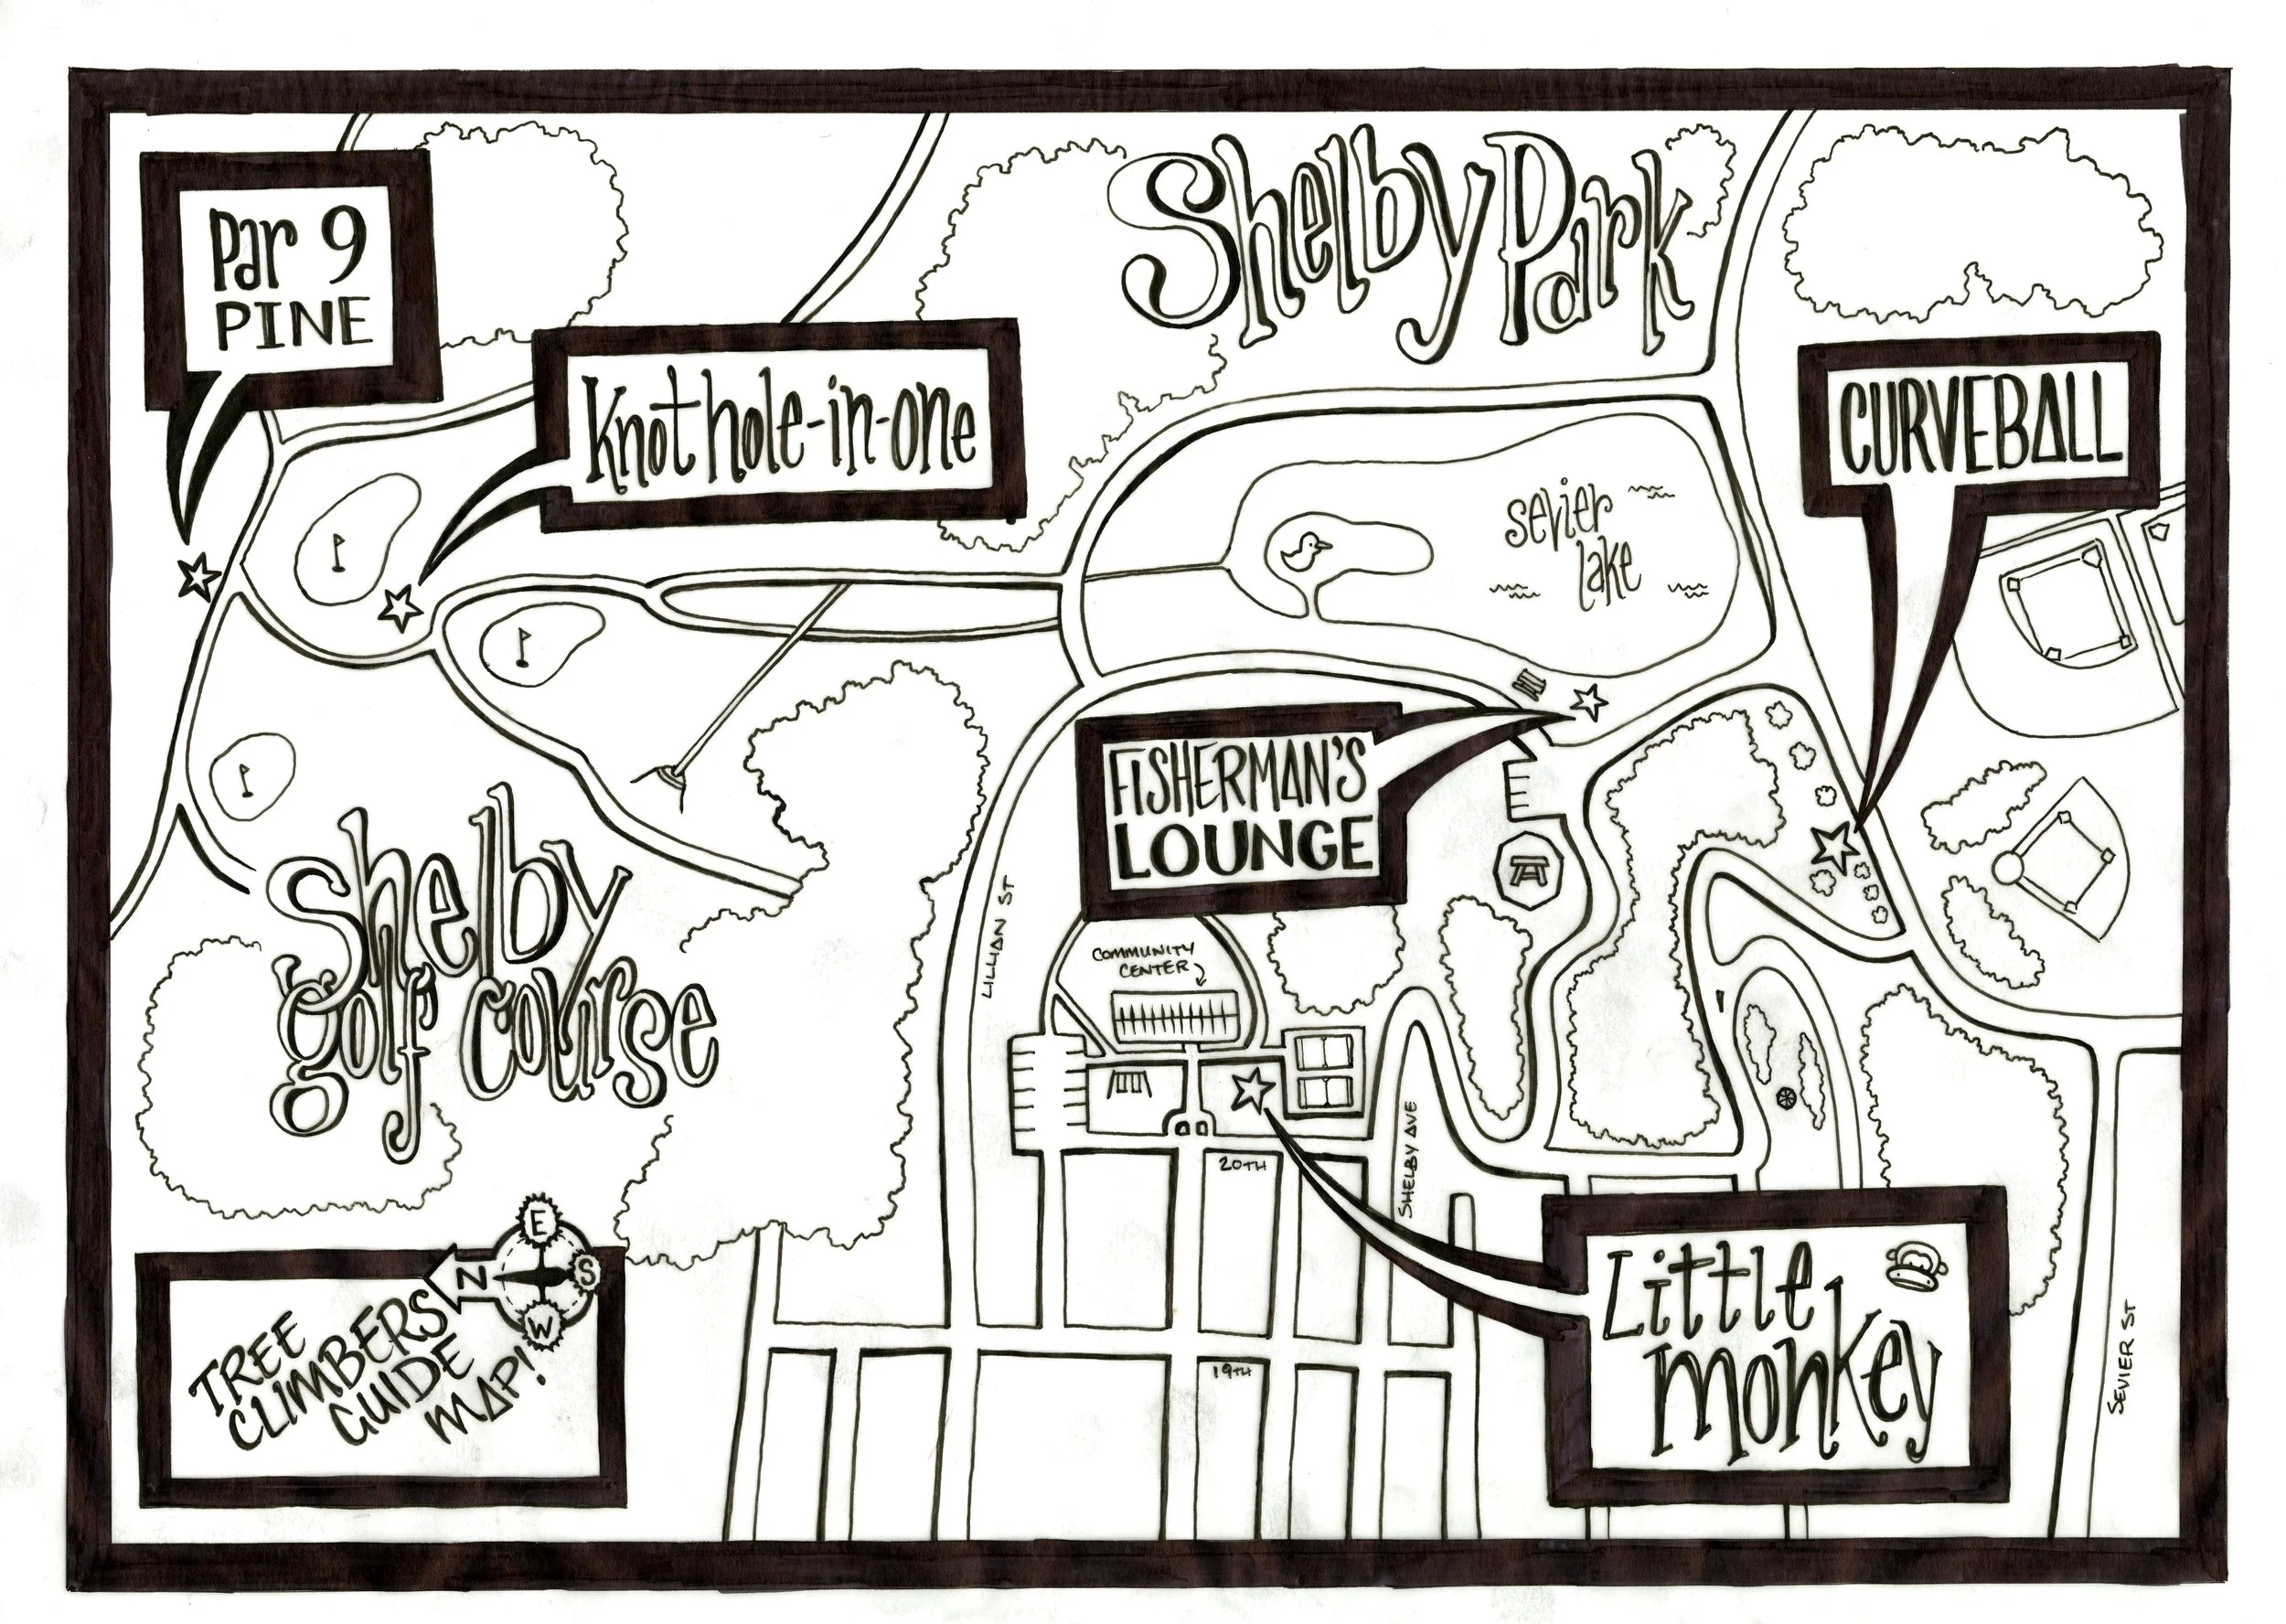 Shelby Park
Par 9
PINE
Knothole-in-one
CURVEBALL
sevier
lake
FISHERMAN'S
LOUNGE
Shelby
golf course
LILLIAN ST
COMMUNITY
CENTER
20TH
SHELBY AVE
19TH
Little
monkey
SEVIER ST
E
N
S
W
TREE
CLIMBERS
GUIDE
MAP!